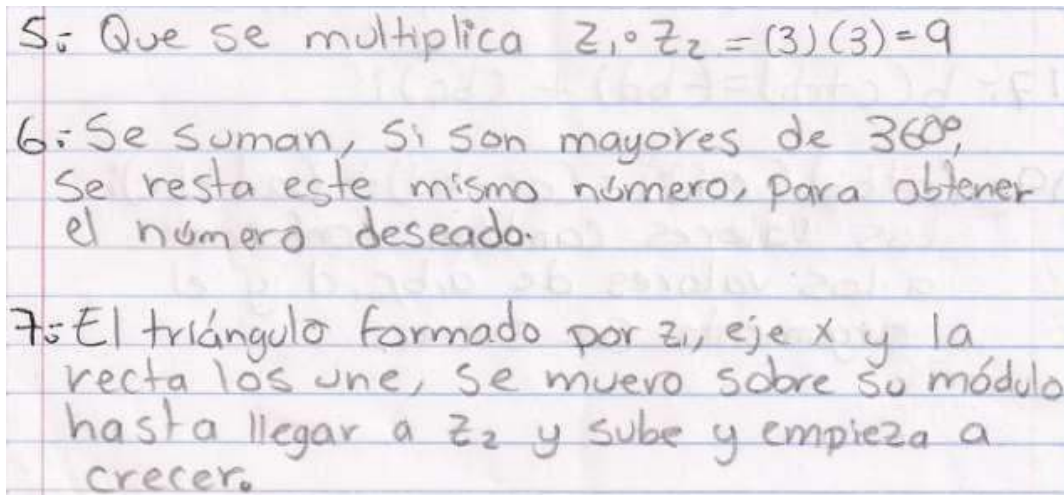 5.- Que se multiplica z₁∘z₂ = (3)(3)=9
6.- Se suman, si son mayores de 360°,
se resta este mismo número, para obtener
el número deseado.
7.- El triángulo formado por z₁, eje x y la
recta los une, se muevo sobre su módulo
hasta llegar a z₂ y sube y empieza a
crecer.